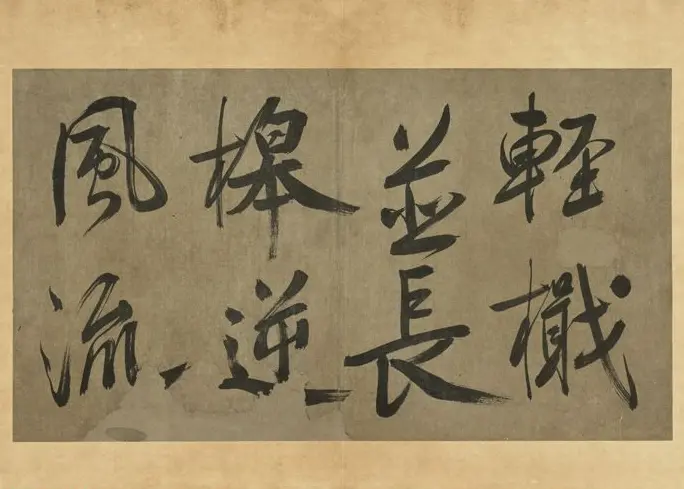 輕檝
並長
槔逆
風流